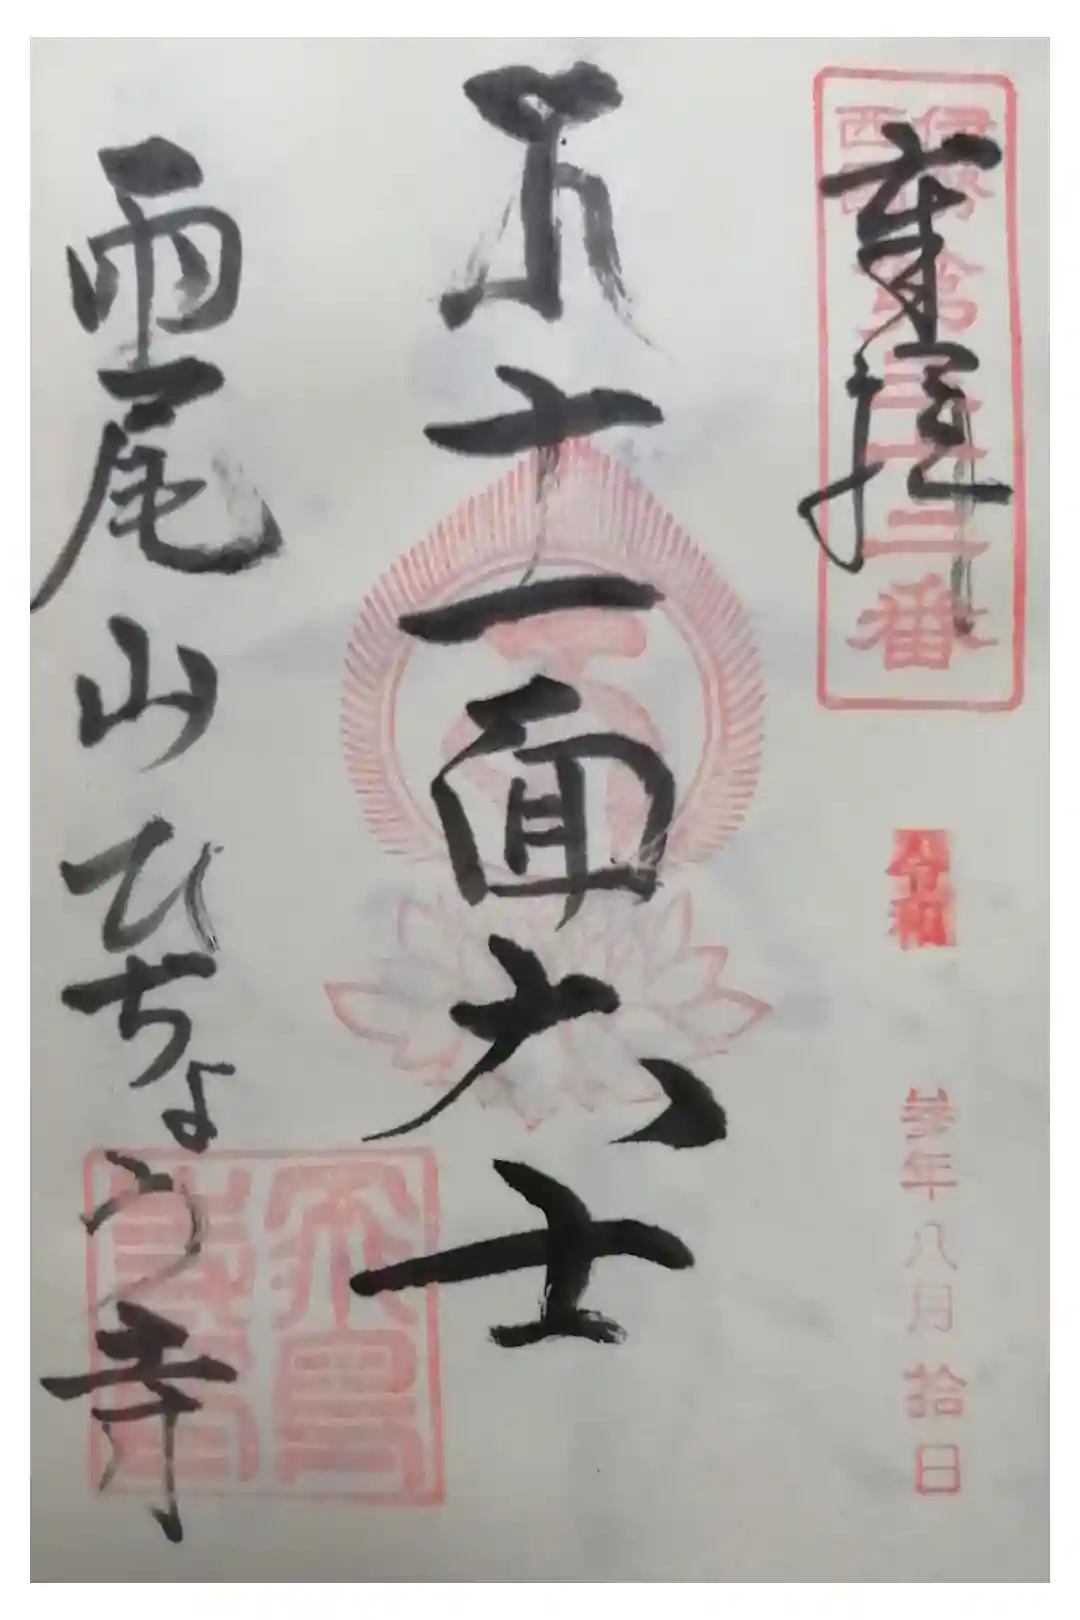 奉拝
伊勢
西国
第三十二番
令和
参年八月拾日
十一面大士
雨尾山ひちょう寺